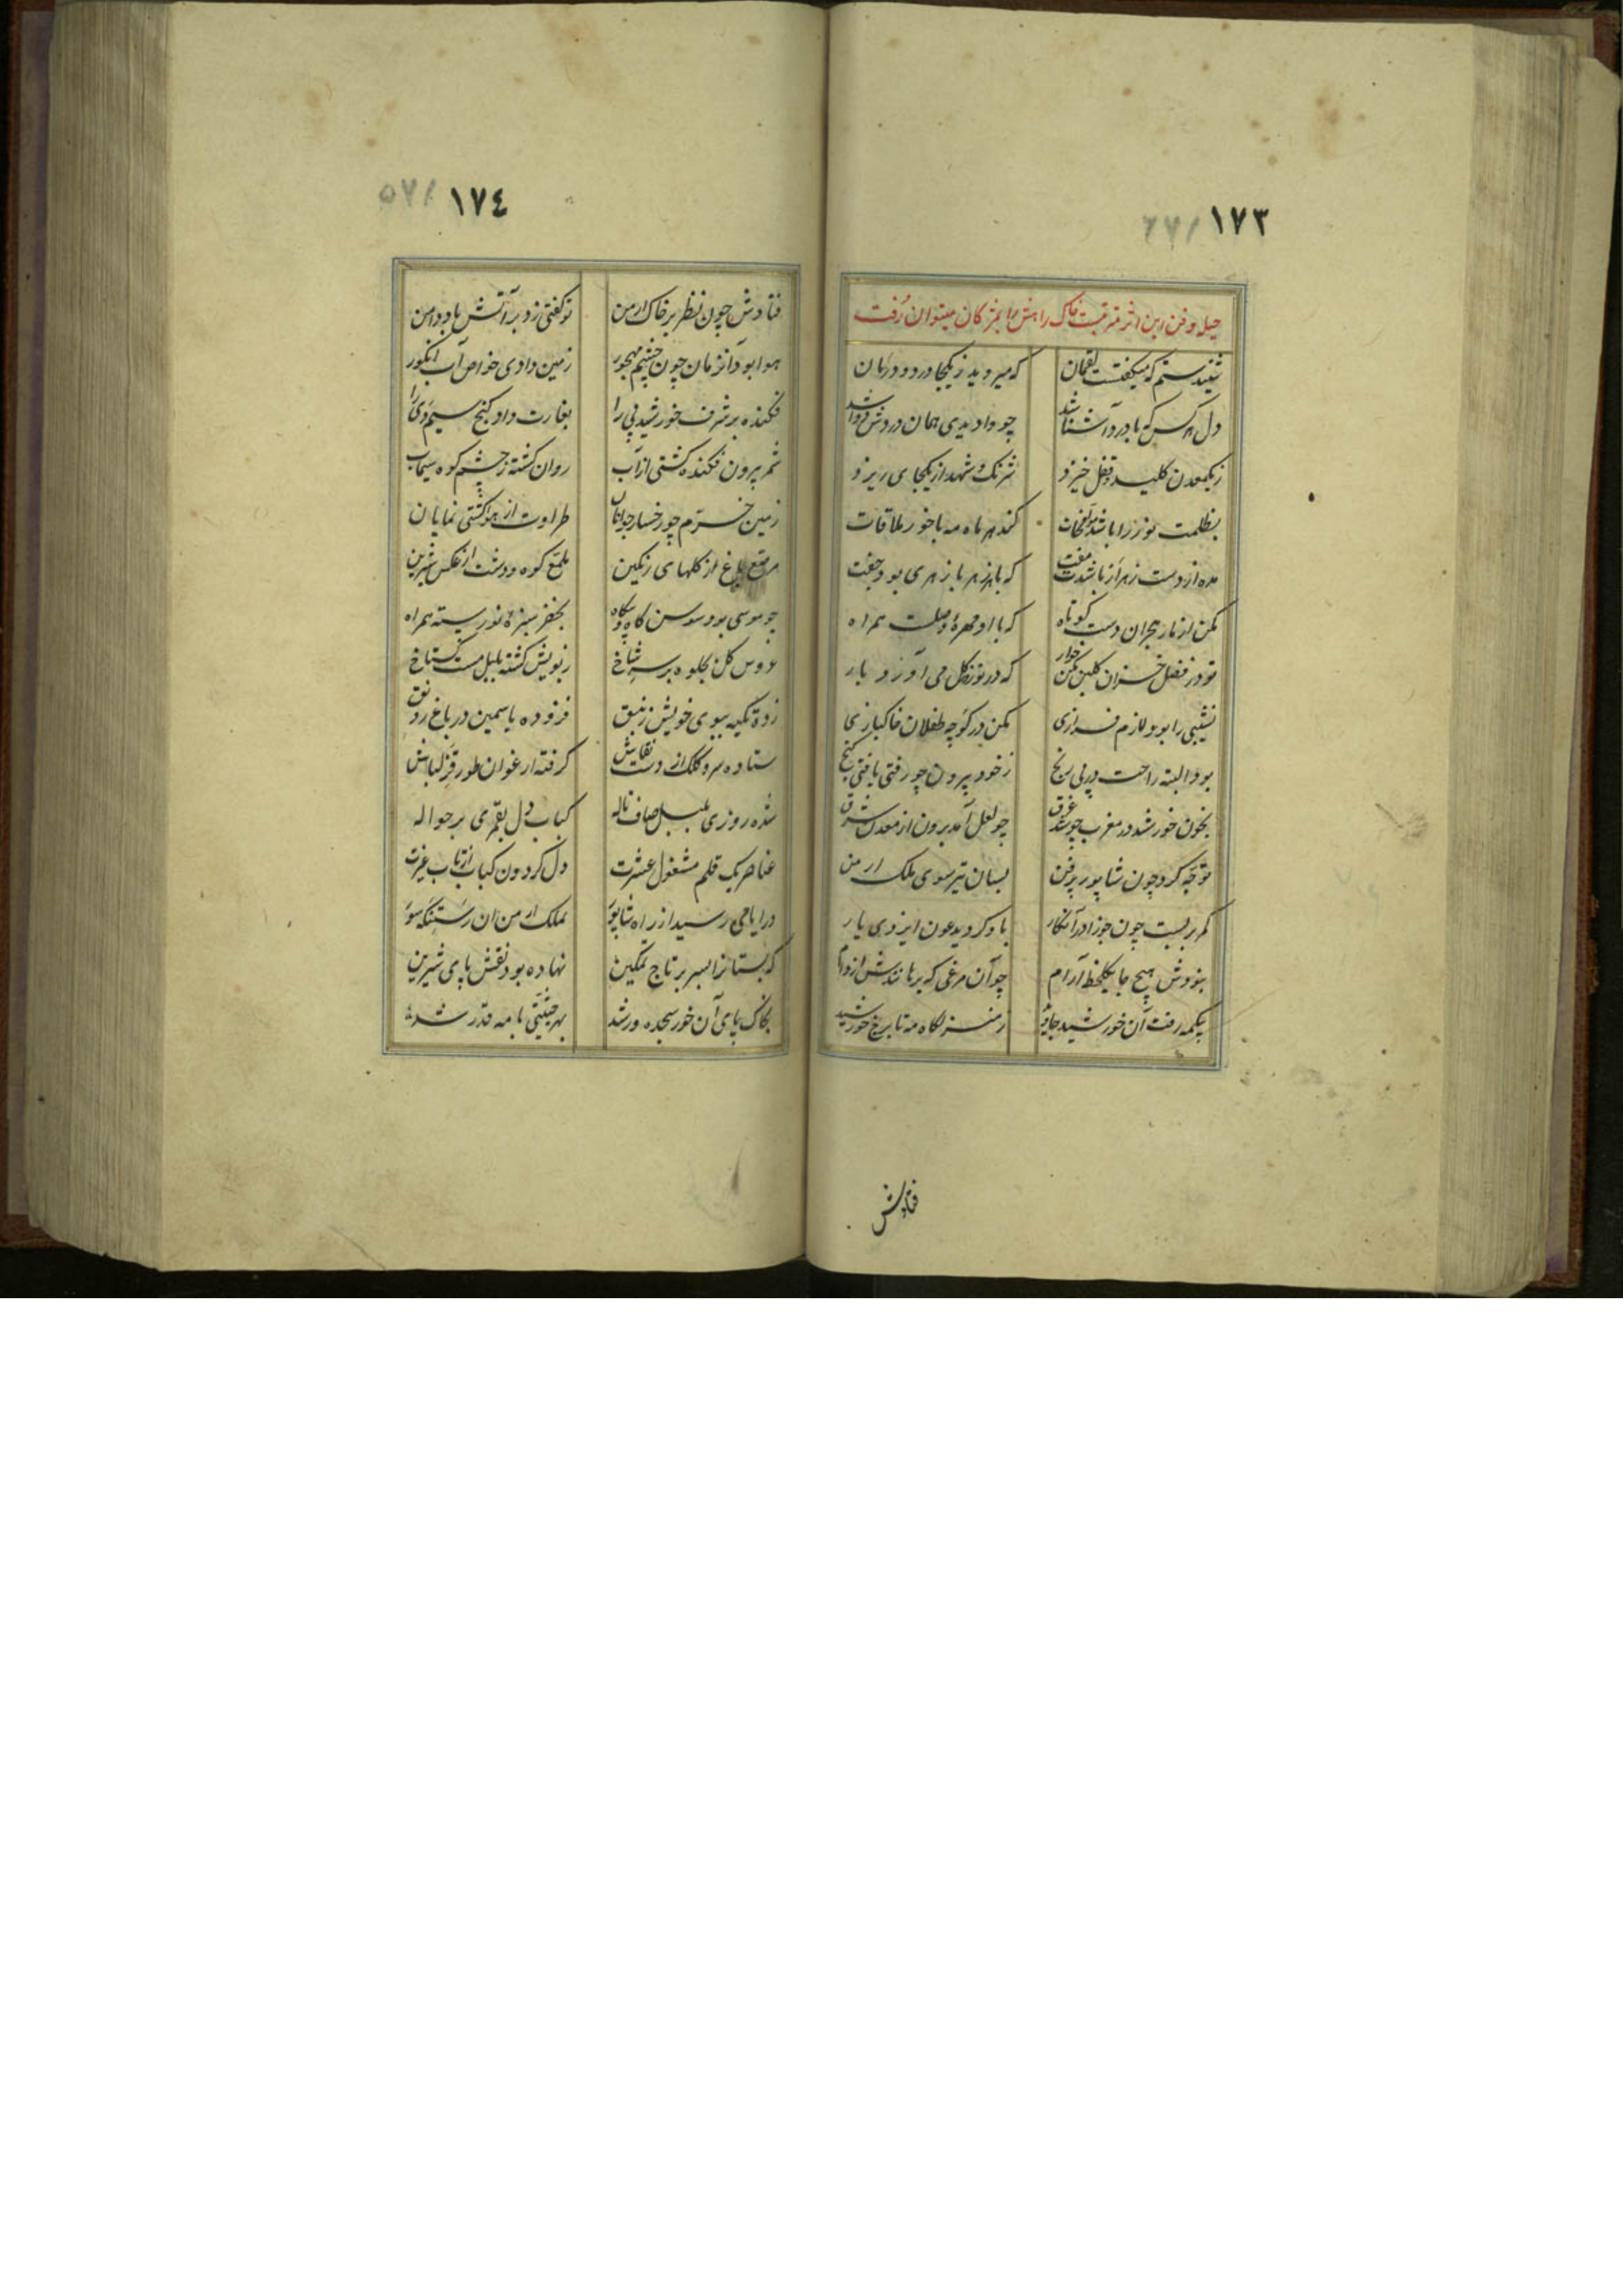 ١٧٣
حیله و فن این اثر مترتبست خاک راهش را بمژکان میتوان رُفت
شنیدستم که میکفتست لقمان که میروید ز یکجا درد و درمان
دل هر کس که با درد آشنا شد چو وادیدی همان دردش دوا شد
ز یکمعدن کلید و قفل خیزد شرنک و شهد از یکجای ریزد
بظلمت نور را باشد کند هر ماه مه با خور ملاقات
مده از دست زهر ار باشدت مفت که با هر زهر پازهری بود جفت
مکن از مار هجران دست کوتاه که با او مهرهٔ وصلست همراه
تو در فصل خزان کلبن مکن خوار که در نوروز کل می آورد بار
نشیبی را بود لازم فرازی مکن در کوچه طفلان خاکبازی
بود البته راحت در پی رنج ز خود بیرون چو رفتی یافتی کنج
بخون خورشید در مغرب چو شد غرق چو لعل آمد برون از معدن شرق
توجه کرد چون شاپور پرفن بسان تیر سوی ملک ارمن
کمر بربست چون جوزا در آنکار باو کردید عون ایزدی یار
بنودش هیچ جا یکلحظه آرام چو آن مرغی که برهانندش از دام
بیکمه رفت آن خورشید ز منزلکاه مه تا برج خورشید
فتادش
١٧٤
فتادش چون نظر بر خاک ارمن تو کفتی زد بر آتش باد دامن
هوا بود آنزمان چون چشم مهجور زمین دادی خواص آب انکور
فکنده بر شرف خورشید پی را بغارت داد کنج سیم دی را
شمر بیرون فکنده کشتی از آب روان کشته ز چشم کوه سیماب
زمین خرّم چو رخسار جوانان طراوت از هوا کشتی نمایان
مرقع باغ از کلهای رنکین ملمّع کوه و دشت از عکس شیرین
چو موسی بود سوسن کاه و بیکاه بخضر سبزهٔ نورسته همراه
عروس کل بجلوه بر سر شاخ ز بویش کشته بلبل مست کستاخ
زده تکیه ببوی خویش زنبق فزوده یاسمین در باغ رونق
ستاده سرو کلک از دست نقاش کرفته ارغوان طور قزلباش
شده روزی بلبل صاف ناله کباب دل بقمری بر حواله
عناصر یک قلم مشغول عشرت دل کردون کباب از تاب غیرت
در ایامی رسید از راه شاپور بملک ارمن آن
که بستانرا بسر بر تاج تمکین نهاده بود نقش پای شیرین
بخاک پای آن خور سجده ور شد بهر جنبش با مه